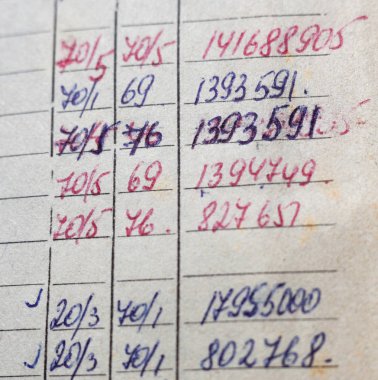 70/5 70/5 141688905
70/1 69 1393591.
70/5 76 1393591
70/5 69 1394749.
70/5 76. 827657
20/3 70/1 17955000
20/3 70/1 802768.